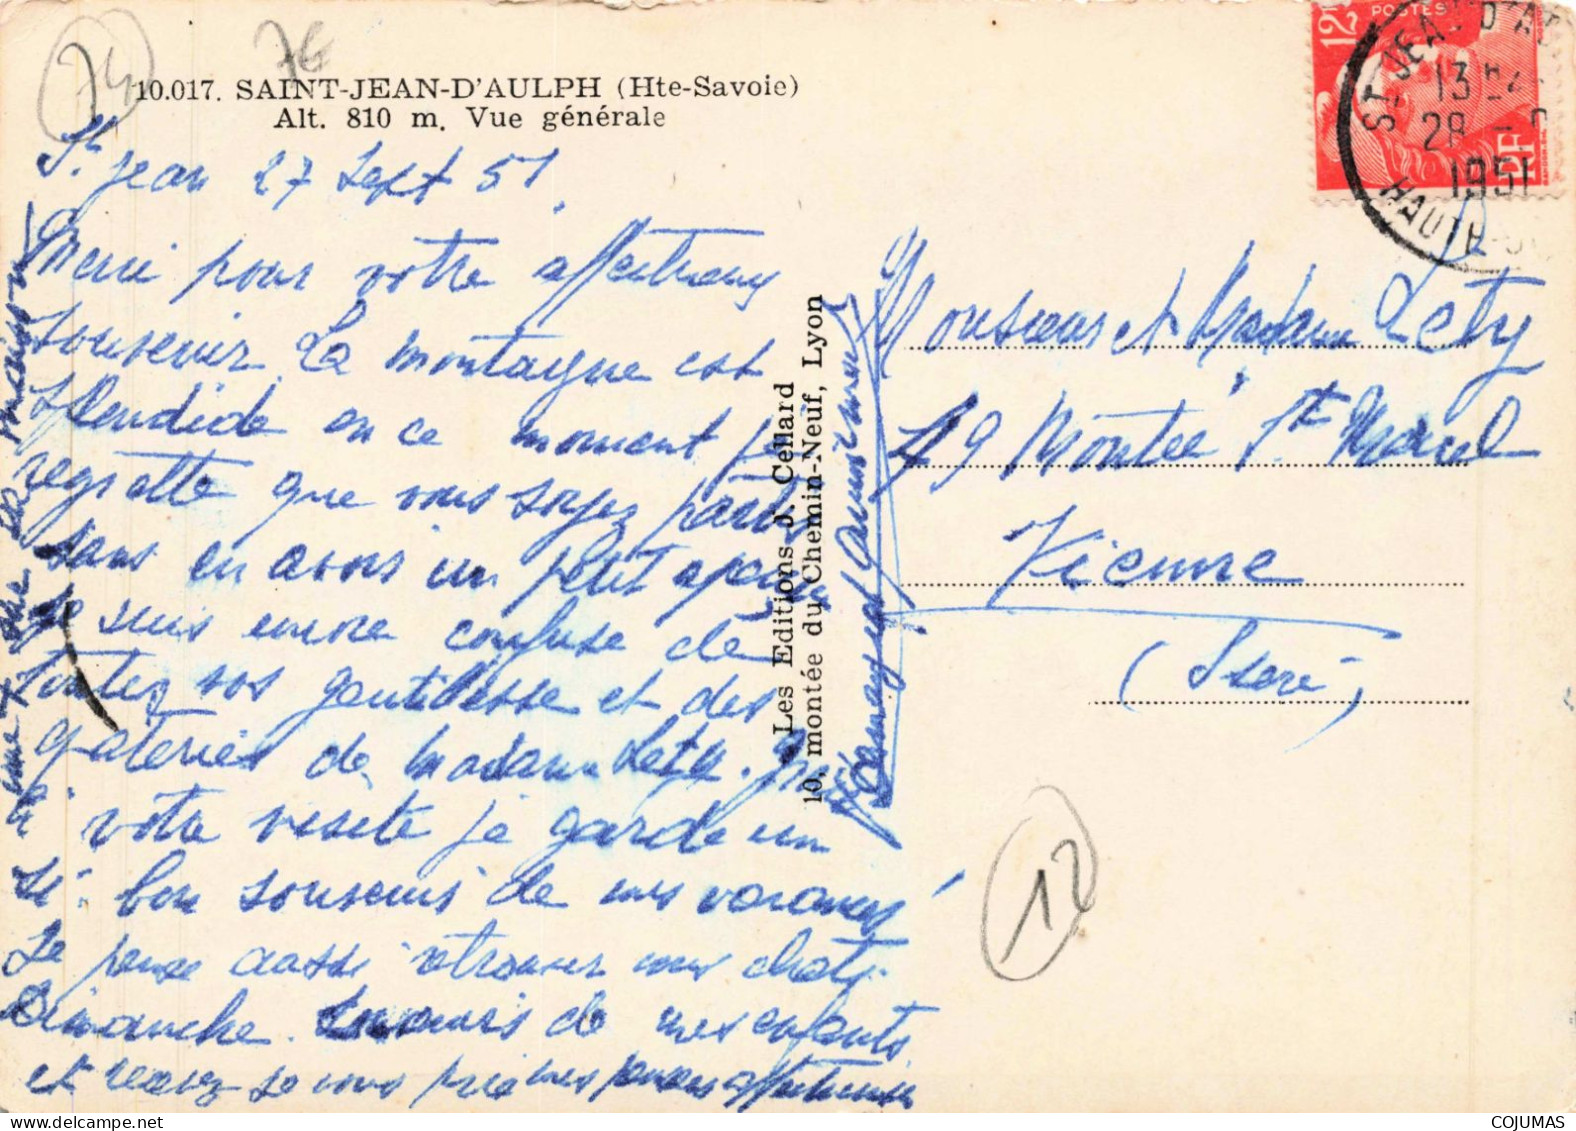 74
76
10.017. SAINT-JEAN-D'AULPH (Hte-Savoie)
Alt. 810 m. Vue générale
St Jean 27 Sept 51.
Merci pour votre affectueux
souvenir. La montagne est
splendide en ce moment je
regrette que vous soyez partis
sans en avoir un petit aperçu
Je suis encore confuse de
toutes vos gentillesse et des
gateries de Madame Lety.
votre visite je garde un
si bon souvenir de mes vacances
Je pense aussi retrouver mes chats
Dimanche. de mes enfants
et recevez je vous prie mes affectueuses
la maison
Les Editions J. Cellard
10, montée du Chemin-Neuf, Lyon
12F
POSTES
RF
ST JEAN D'A
13
28 - 9
1951
HAUTE-S
Monsieur et Madame Lety
49 Montée St Marcel
Vienne
(Isère)
12
COJUMAS